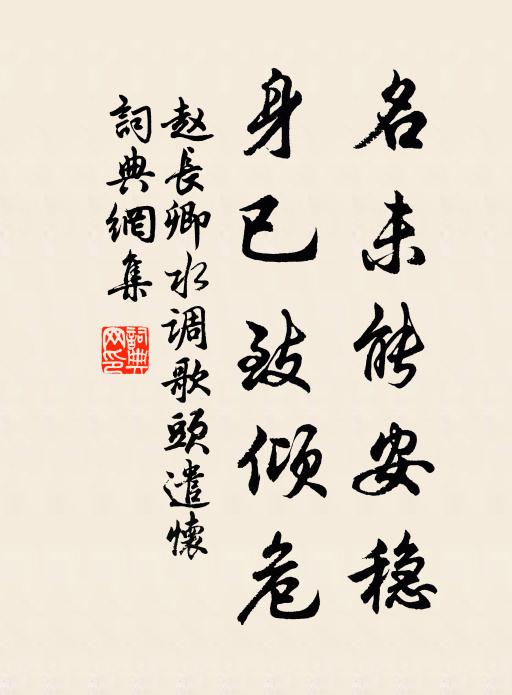 名未能安稳
身已致倾危
赵長卿水调歌頭遣懷
詞典網集
詞典网印